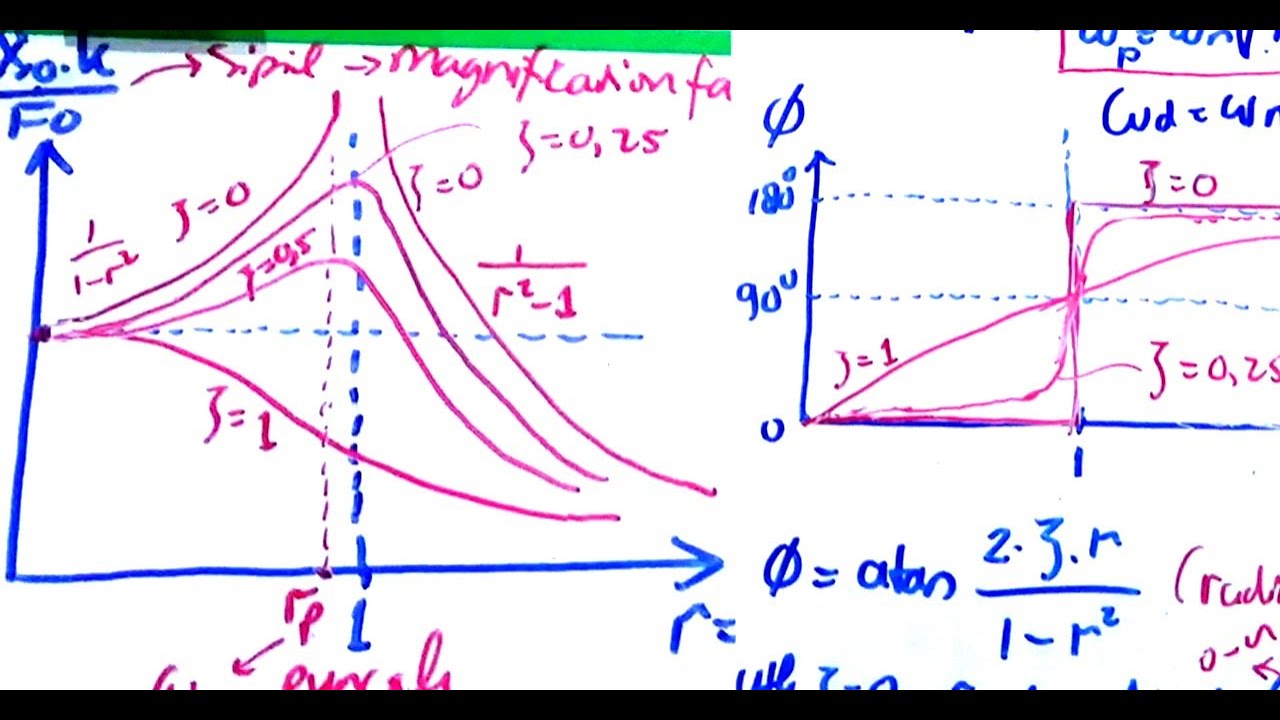 X₀.k / F₀ → sipil → magnification fa
ζ=0,25
ζ=0
ζ=0
1 / 1-r²
ζ=0,5
1 / r²-1
ζ=1
rₚ
1
r=
ωₚ=ωₙ√
ωd=ωn
ϕ
180°
ζ=0
90°
ζ=1
ζ=0,25
0
1
ϕ = atan 2.ζ.r / 1-r² (radi